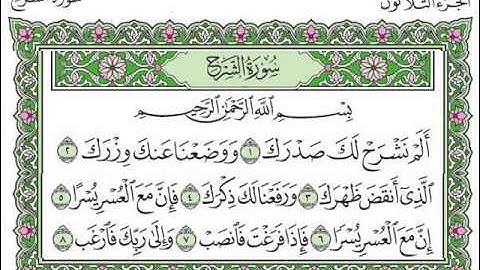 الجزء الثلاثون سورة الشرح
سُورَةُ الشَّرْحِ
بِسْمِ اللَّهِ الرَّحْمَٰنِ الرَّحِيمِ
أَلَمْ نَشْرَحْ لَكَ صَدْرَكَ ١ وَوَضَعْنَا عَنكَ وِزْرَكَ ٢
الَّذِي أَنقَضَ ظَهْرَكَ ٣ وَرَفَعْنَا لَكَ ذِكْرَكَ ٤ فَإِنَّ مَعَ الْعُسْرِ يُسْرًا ٥
إِنَّ مَعَ الْعُسْرِ يُسْرًا ٦ فَإِذَا فَرَغْتَ فَانصَبْ ٧ وَإِلَىٰ رَبِّكَ فَارْغَب ٨